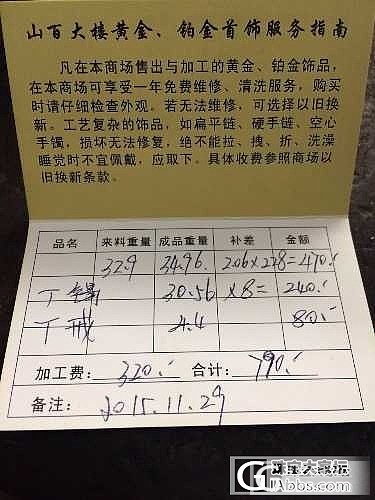 山百大楼黄金、铂金首饰服务指南
凡在本商场售出与加工的黄金、铂金饰品,
在本商场可享受一年免费维修、清洗服务,购买
时请仔细检查外观。若无法维修,可选择以旧换
新。工艺复杂的饰品,如扁平链、硬手链、空心
手镯,损坏无法修复,绝不能拉、拽、折、洗澡
睡觉时不宜佩戴,应取下。具体收费参照商场以
旧换新条款。
品名 来料重量 成品重量 补差 金额
32.9 34.96 2.06×228=470.
丁镯 30.56 ×8= 240.
丁戒 4.4 80.
加工费: 320. 合计: 790.
备注: 2015.11.29